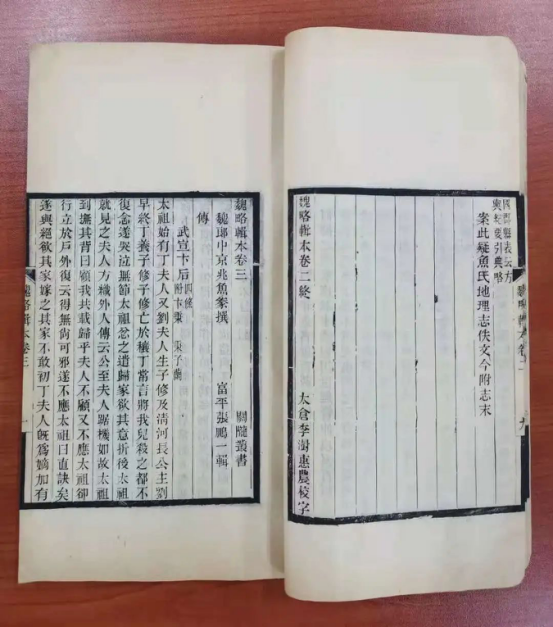 輿紀要引典略
案此疑魚氏地理志佚文今附志末
魏略輯本卷二終
太倉李澍惠農校字
魏略輯本卷三 關隴叢書
魏郎中京兆魚豢撰 富平張鵬一輯
傳
武宣卞后 四條 附卞秉 秉子蘭
太祖始有丁夫人又劉夫人生子修及清河長公主劉
早終丁養子修子修亡於穰丁常言將我兒殺之都不
復念遂哭泣無節太祖忿之遣歸家欲其意折後太祖
就見之夫人方織外人傳云公至夫人踞機如故太祖
到撫其背曰顧我共載歸乎夫人不顧又不應太祖卻
行立於戶外復云得無尚可邪遂不應太祖曰眞訣矣
遂與絕欲其家嫁之其家不敢初丁夫人旣爲嫡加有
魏略輯本卷三
一